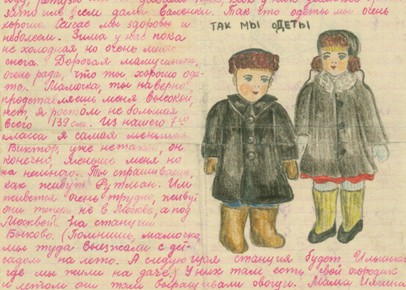 нам дали валенки. Так что одеты мы очень
хорошо. Сейчас мы здоровы и
не болеем. Зима у нас пока
не холодная но очень много
снега. Дорогая мамусенька,
очень рада, что ты хорошо оде-
та. Мамочка, ты наверно,
представляешь меня высокой,
нет, я ростом не большая
всего 139 см. Из нашего 7го
класса я самая меньшая
Виктор, уже не такой, он
конечно, меньше меня но
на немного. Ты спрашиваешь,
как живут Рутман. Им
живется очень трудно, живут
они теперь не в Москве, а под
Москвой на станции
Быково. (Помнишь, мамочка,
мы туда выезжали с дет-
садом на лето. А следующая станция будет Ильинка
где мы жили на даче) У них там есть свой огородик
и летом они там выращивали овощи. Мама
ТАК МЫ ОДЕТЫ